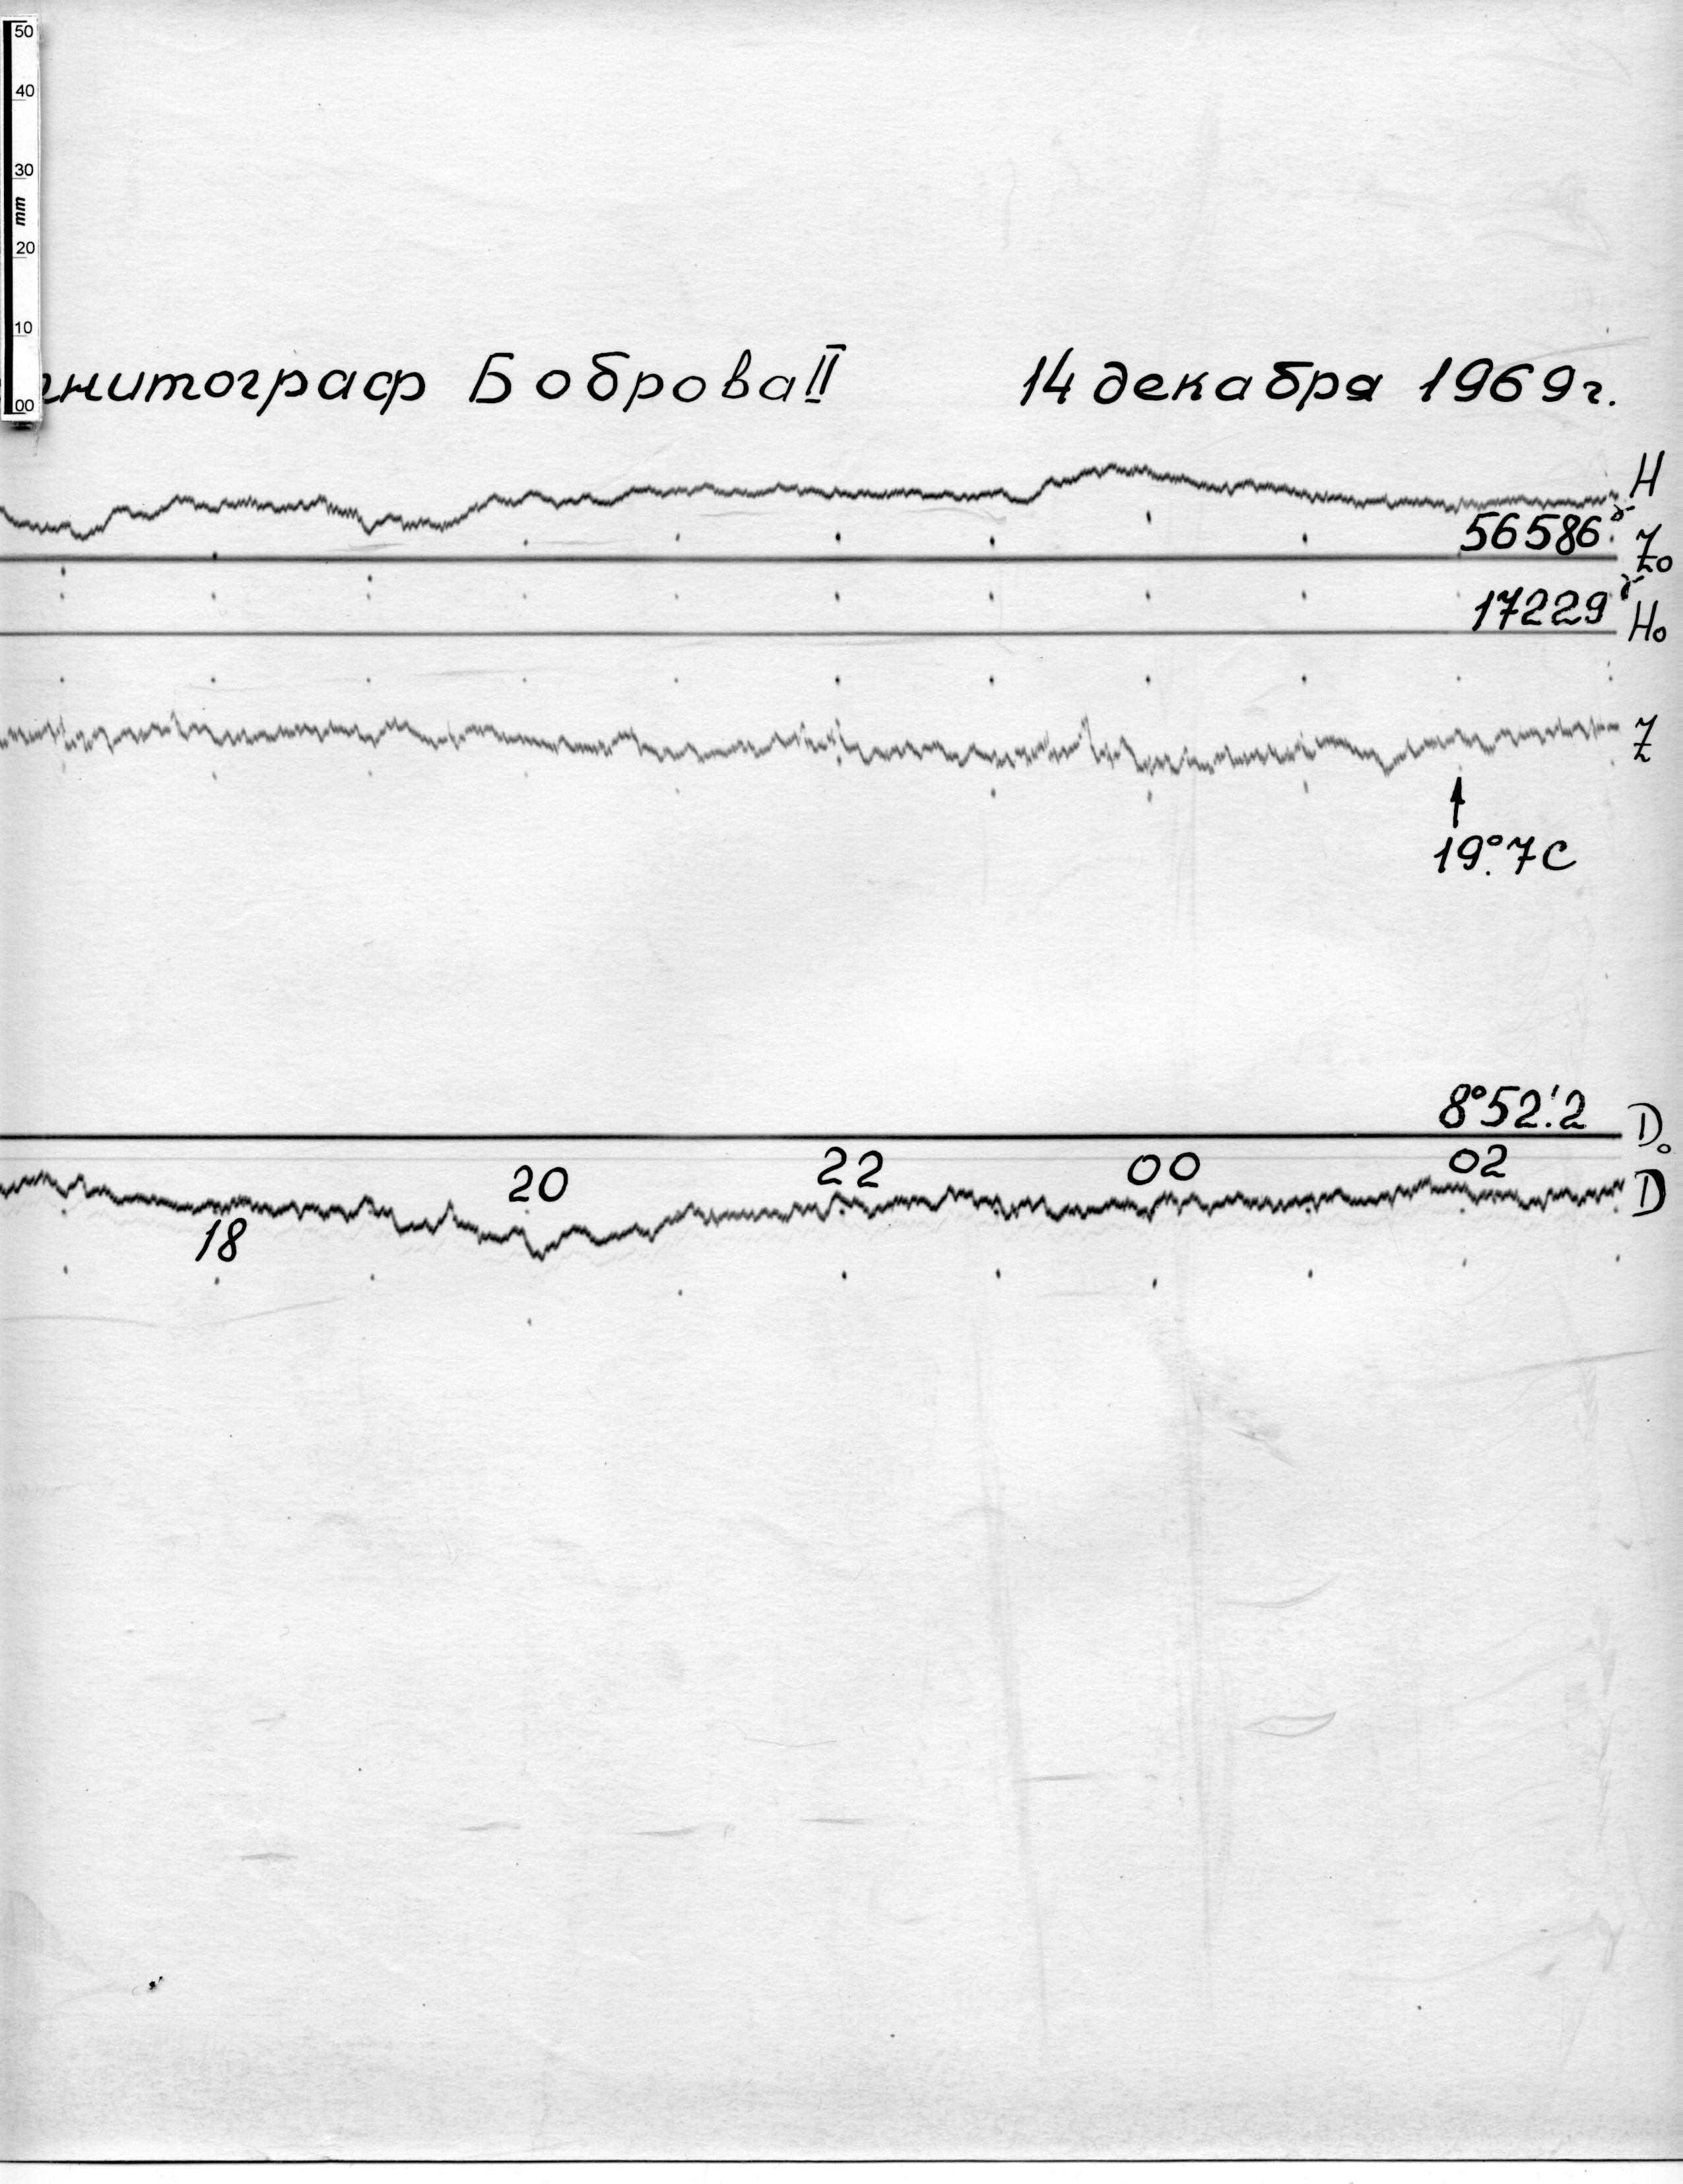 50
40
30
mm
20
10
00
гнитограф Боброва II 14 декабря 1969г.
H
56586 γ Z₀
17229 γ H₀
Z
19°.7 C
8°52'.2 D₀
20 22 00 02 D
18